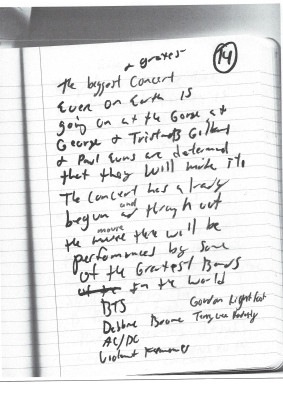 & greatest
14
The biggest Concert
Ever on Earth is
going on at the Gorge at
George & Tristan's Gilbert
& Paul Evans are determed
that they will make it.
The Concert has alrady
begun and through out
the movie there will be
performances by some
of the Greatest Bands
in the world
BTS Gordon Lightfoot
Debbie Boone
AC/DC
Violent Femmes